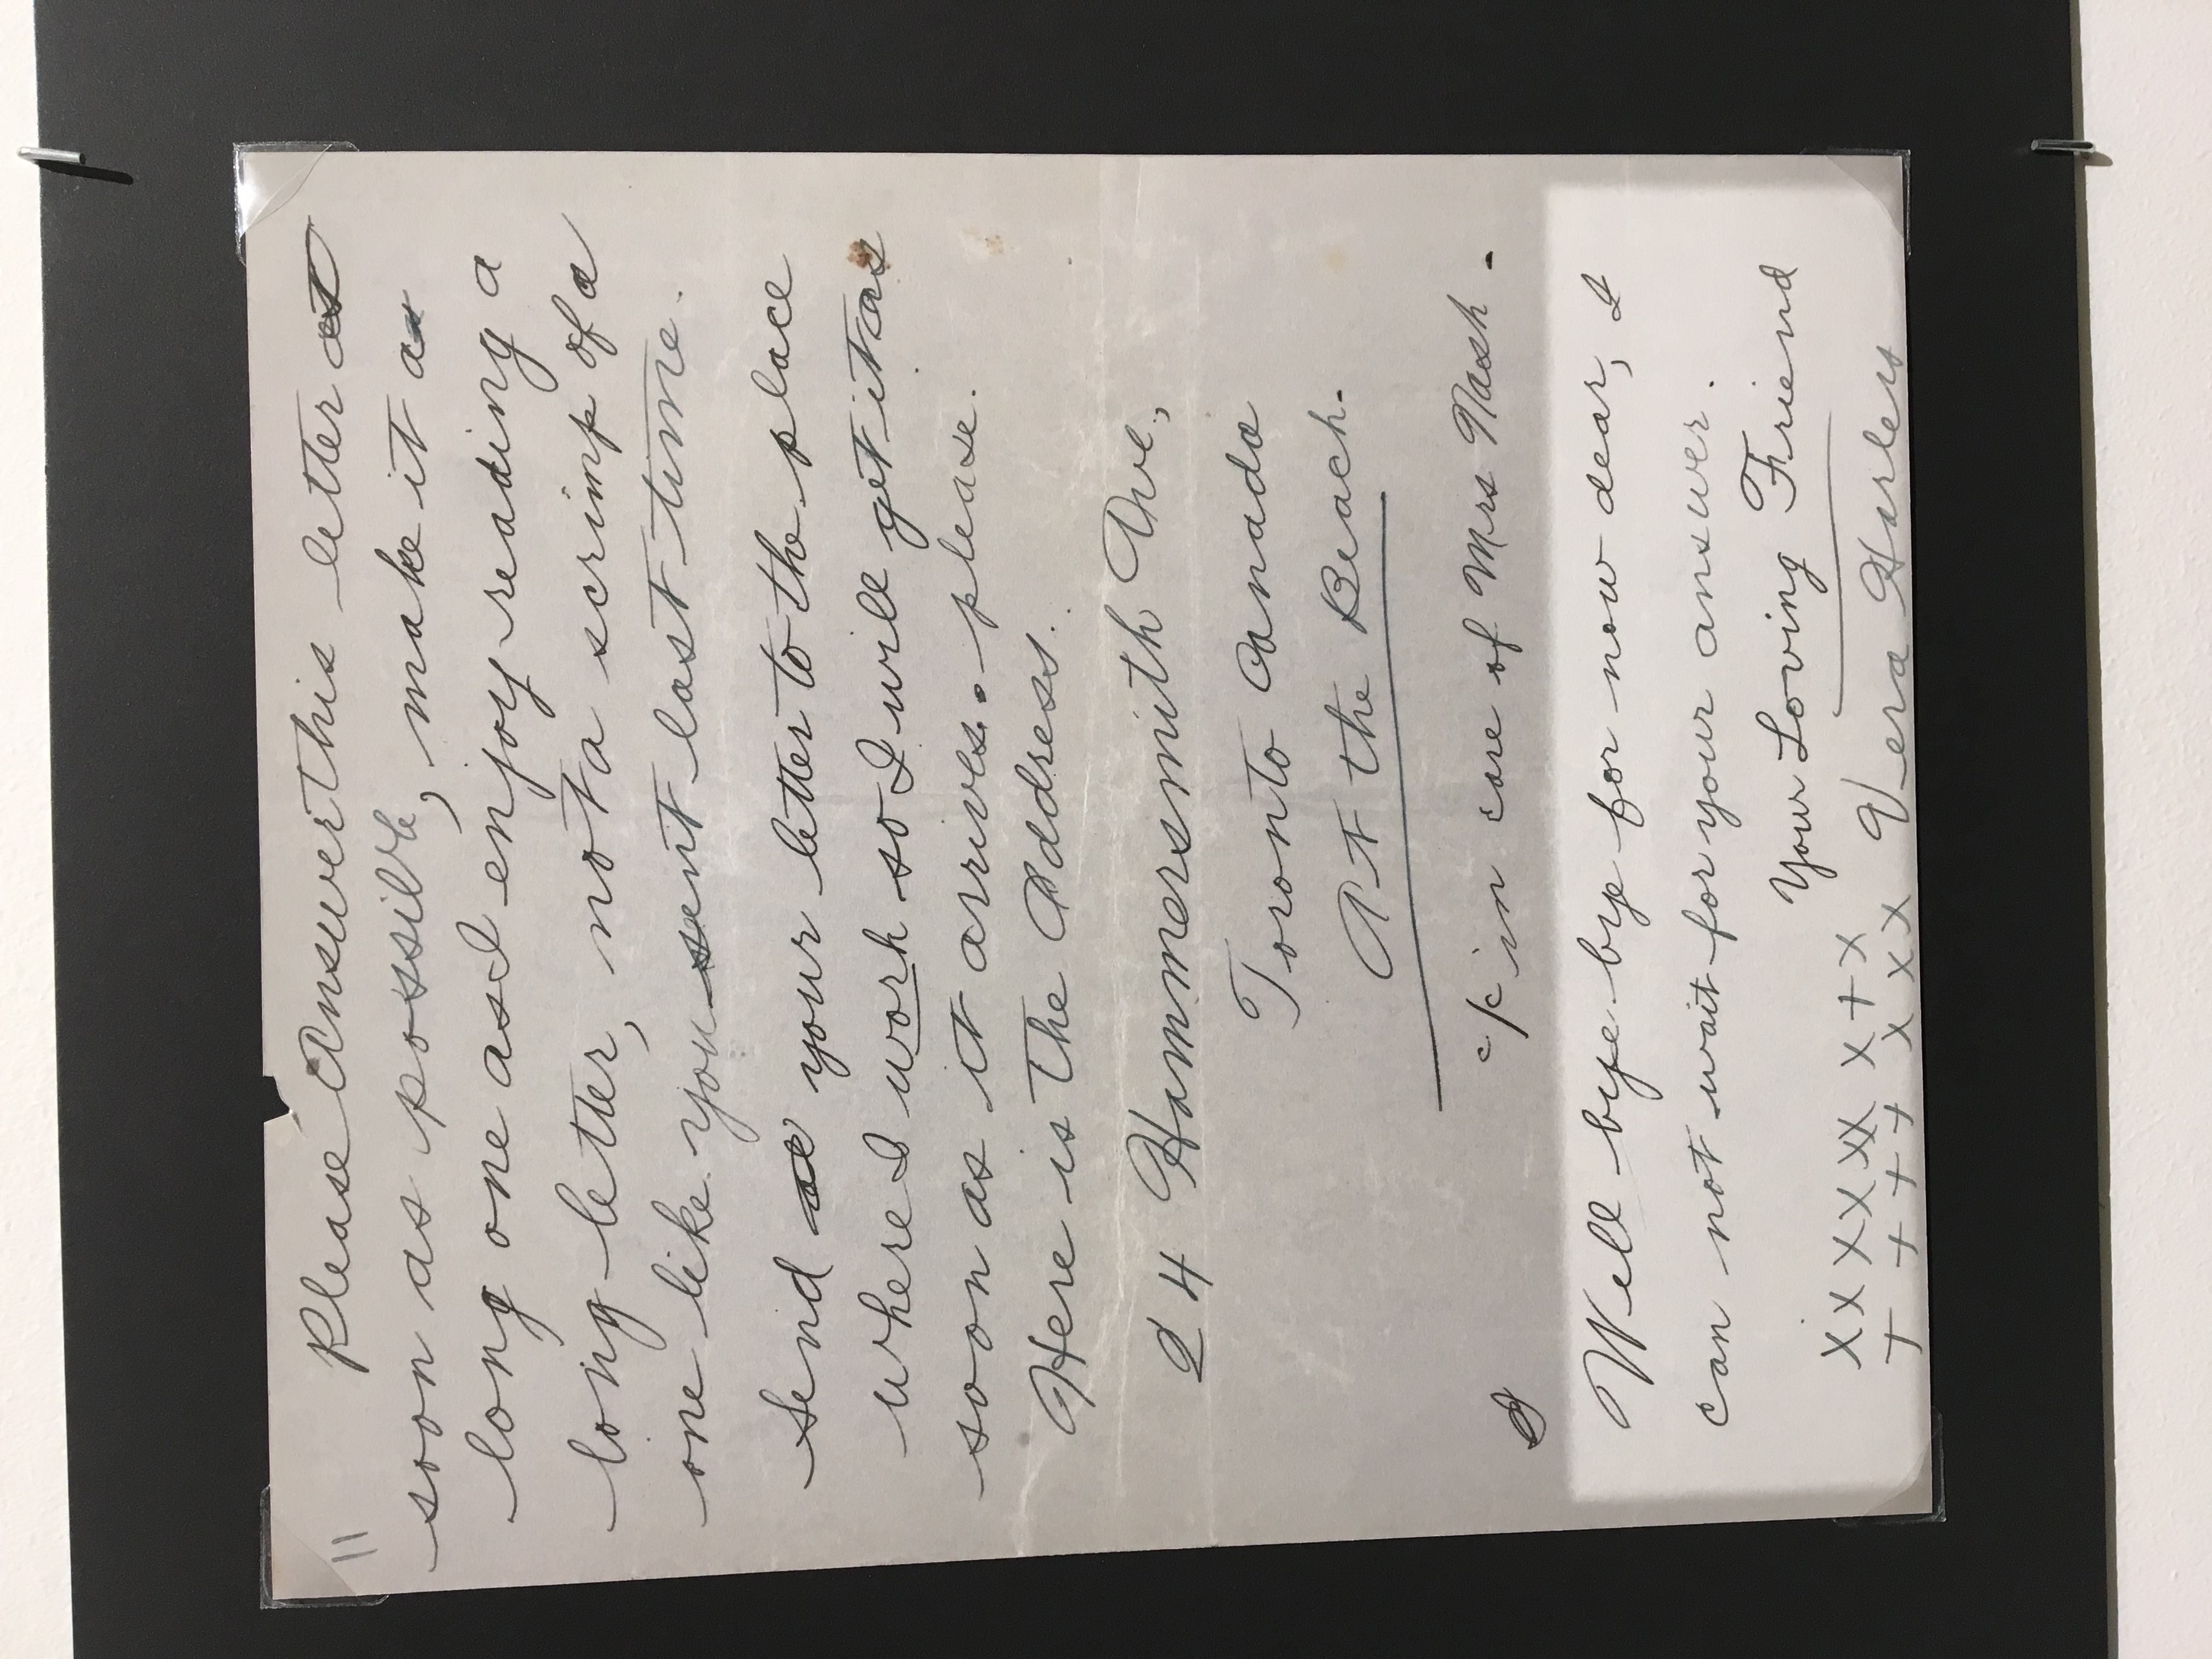 11
Please Answer this letter as
soon as possible, make it a
long one as I enjoy reading a
long letter, not a scrimp of a
one like you sent last time.
Send your letter to the place
where I work so I will get it as
soon as it arrives. please.
Here is the Address.
24 Hammersmith Ave.,
Toronto Canada
At the Beach.
c/c in care of Mrs Nash.
I
Well bye bye for now dear, I
can not wait for your answer.
Your Loving Friend
xx xx xx x+x
+ + + + x x x Vera